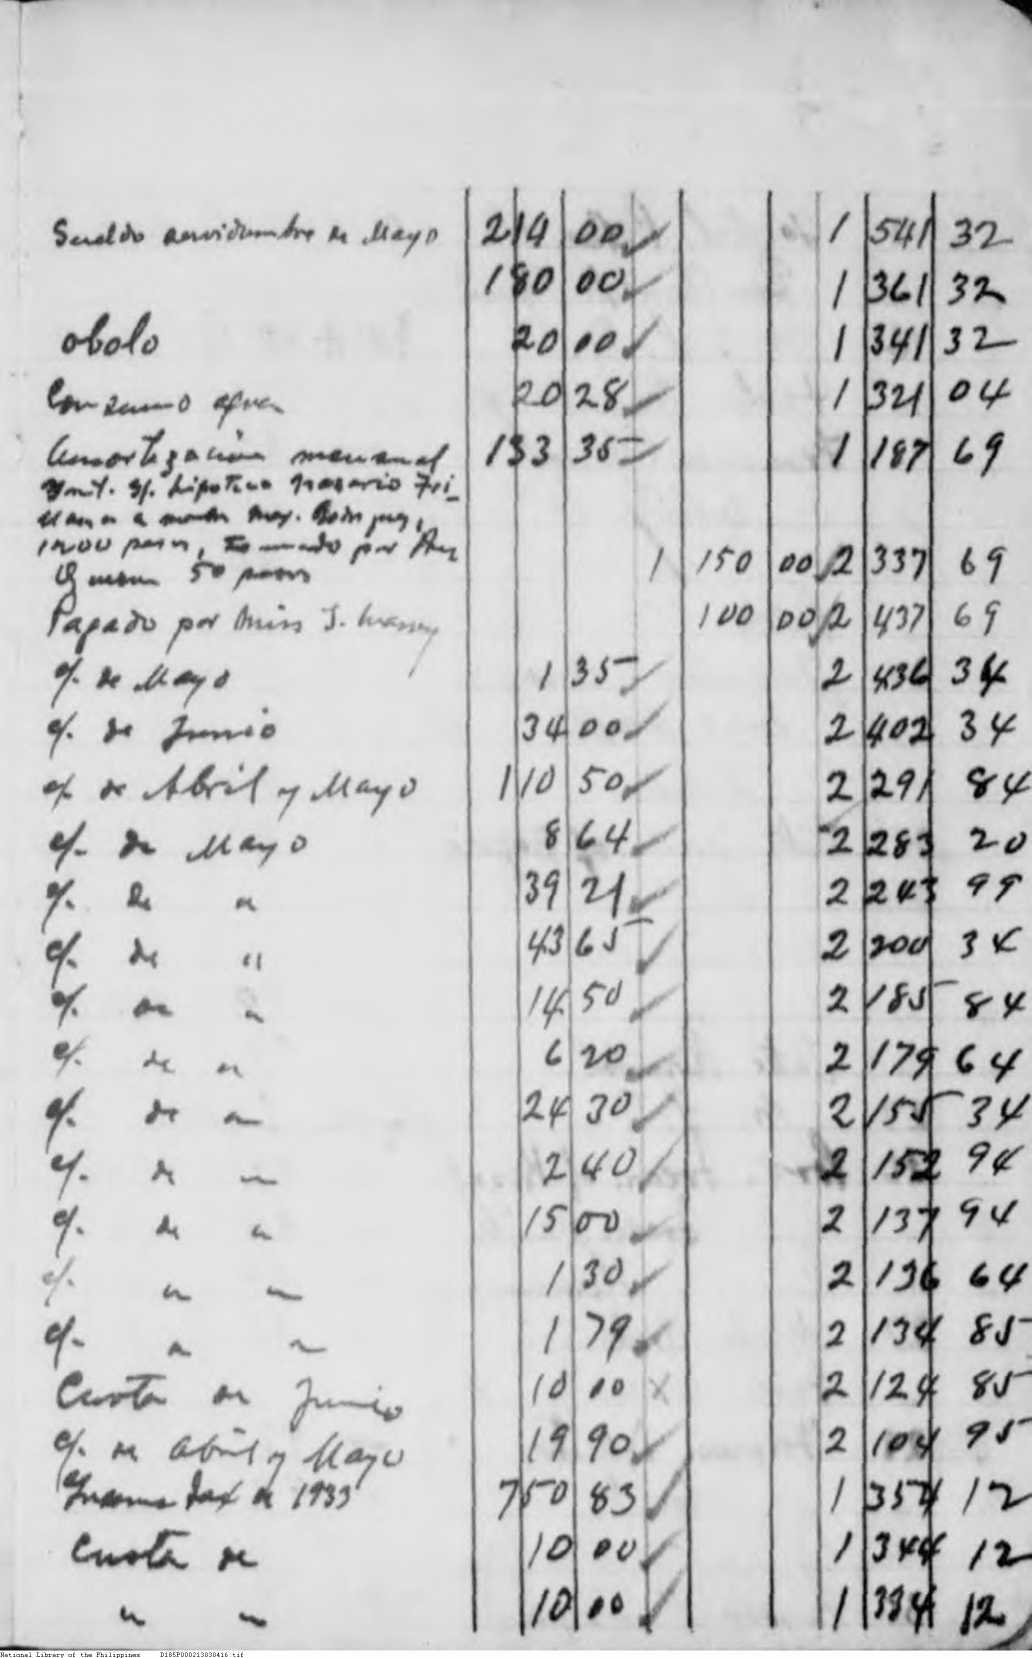 Sueldo servidumbre de Mayo 214 00 1 541 32
180 00 1 361 32
obolo 20 00 1 341 32
Consumo agua 20 28 1 321 04
Amortización mensual 133 35 1 187 69
hipoteca Nazario Tri_
a
1200 pesos, por
50 pesos 1 150 00 2 337 69
Pagado por Miss J. 100 00 2 437 69
c/. de Mayo 1 35 2 436 34
c/. de Junio 34 00 2 402 34
c/. de Abril y Mayo 110 50 2 291 84
c/. de Mayo 8 64 2 283 20
c/. de " 39 21 2 243 99
c/. de " 43 65 2 200 34
c/. de " 14 50 2 185 84
c/. de " 6 20 2 179 64
c/. de " 24 30 2 155 34
c/. de " 2 40 2 152 94
c/. de " 15 00 2 137 94
c/. " " 1 30 2 136 64
c/. " " 1 79 2 134 85
Cuota de Junio 10 00 x 2 124 85
c/. de Abril y Mayo 19 90 2 104 95
Income Tax de 1933 750 83 1 354 12
Cuota de 10 00 1 344 12
" " 10 00 1 334 12
National Library of the Philippines D185P000213838416.tif